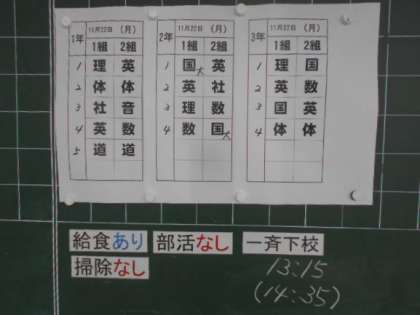 1年 11月22日 (月)
1組 2組
1 理 英
2 体 体
3 社 音
4 英 数
5 道 道
2年 11月22日 (月)
1組 2組
1 国大 英
2 英 社
3 理 数
4 数 国大
3年 11月22日 (月)
1組 2組
1 理 国
2 英 数
3 国 英
4 体 体
給食あり 部活なし 一斉下校
掃除なし 13:15
(14:35)